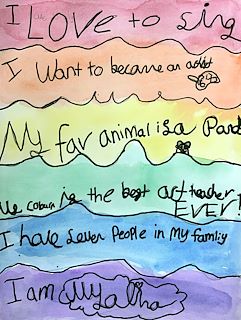 I LOVE to sing
I Want to became an artist
My fav animal is a Pand
is the best art teacher
EVER!
I have seven People in My family
I am